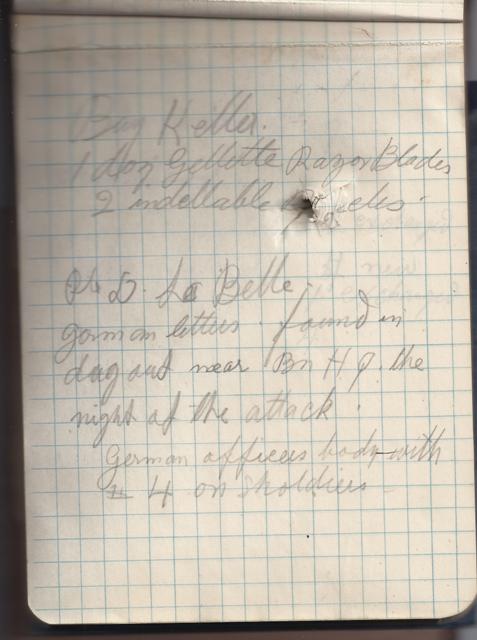 Buy Keller.
1 doz Gillette Razor Blades
2 indellable
Pt D. La Belle
german letters found in
dug out near Bn H q. the
night of the attack.
German officers body with
4 on sholdiers